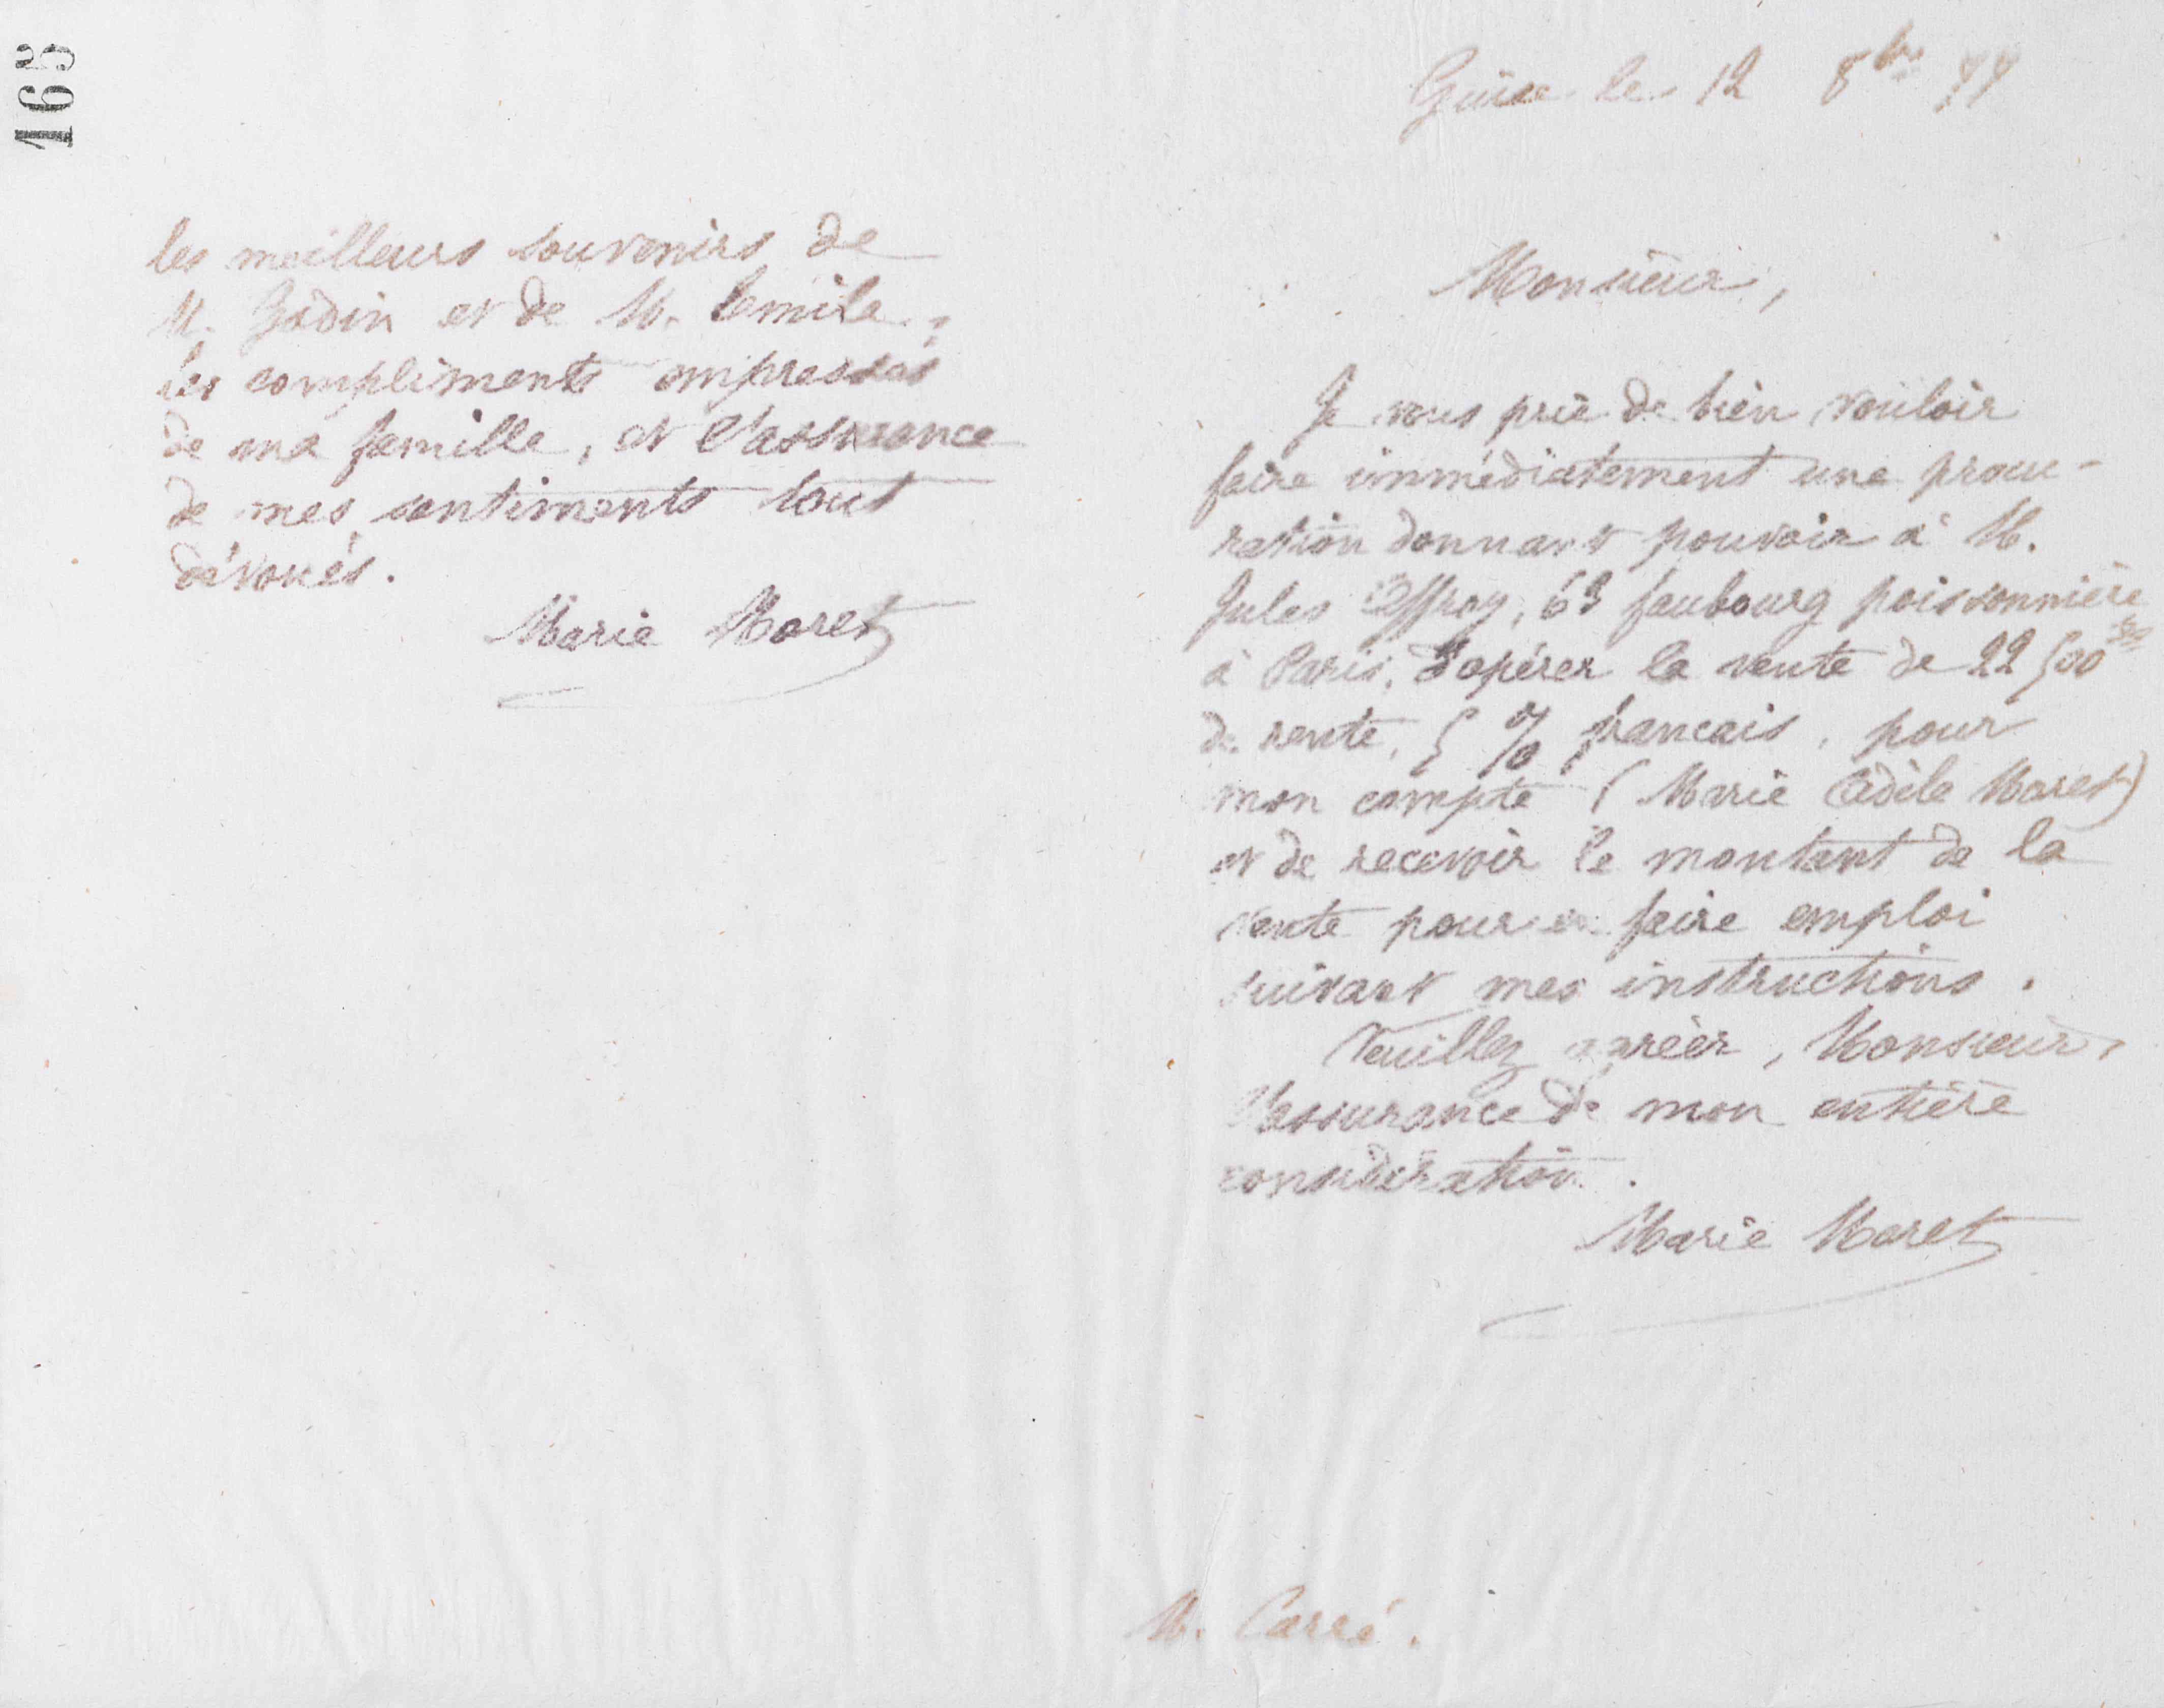 165
les meilleurs souvenirs de
M. Godin et de M. Emile,
les compliments empressés
de ma famille, et l'assurance
de mes sentiments tout
dévoués.
Marie Moret
Guise le 12 8bre 77
Monsieur,
Je vous prie de bien vouloir
faire immédiatement une procu-
ration donnant pouvoir à M.
Jules 63 faubourg poissonnière
à Paris, d'opérer la vente de 22 500
de rente, 5 % français, pour
mon compte (Marie Adèle Moret)
et de recevoir le montant de la
vente pour en faire emploi
suivant mes instructions.
Veuillez agréer, Monsieur,
l'assurance de mon entière
considération.
Marie Moret
M. Carré.